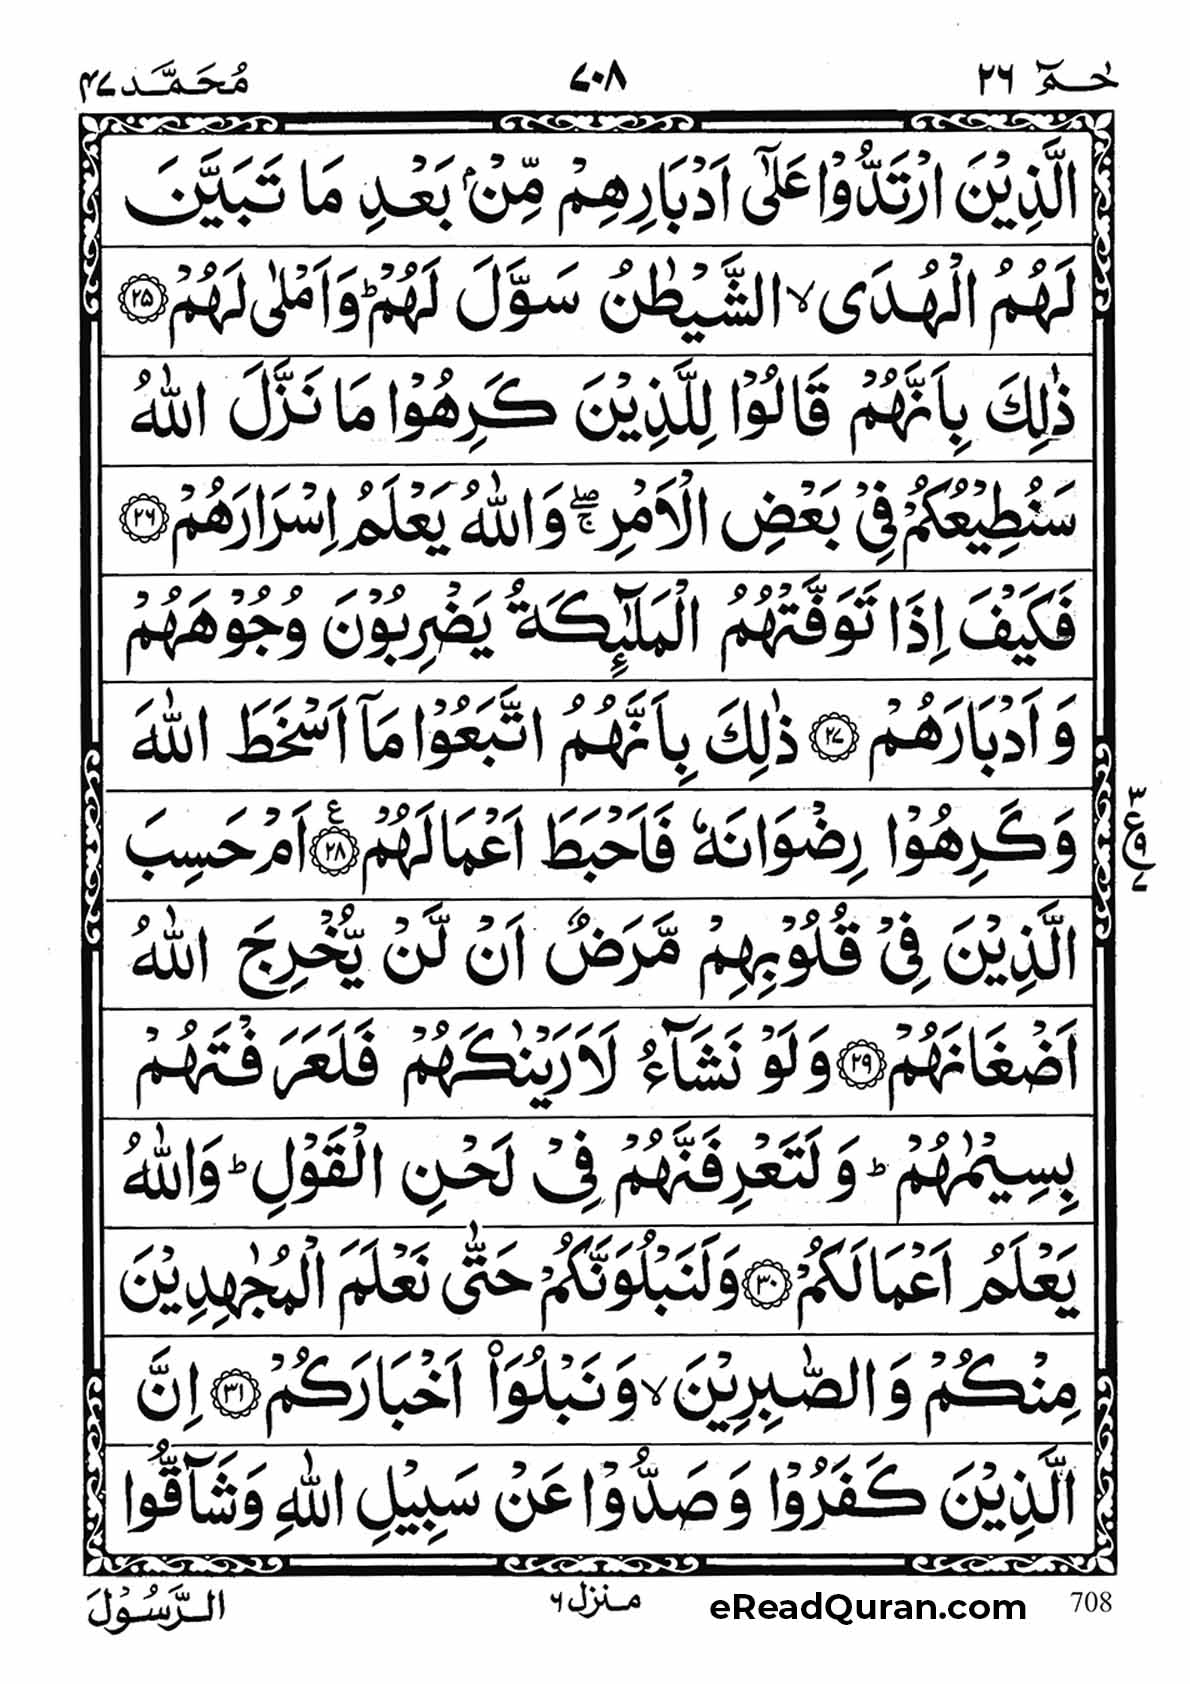 حٰمٓ ٢٦ ٧٠٨ مُحَمَّد ٤٧
الَّذِيْنَ ارْتَدُّوْا عَلٰٓى اَدْبَارِهِمْ مِّنْۢ بَعْدِ مَا تَبَيَّنَ
لَهُمُ الْهُدَى ۙ الشَّيْطٰنُ سَوَّلَ لَهُمْ ؕ وَاَمْلٰى لَهُمْ ﴿۲۵﴾
ذٰلِكَ بِاَنَّهُمْ قَالُوْا لِلَّذِيْنَ كَرِهُوْا مَا نَزَّلَ اللّٰهُ
سَنُطِيْعُكُمْ فِيْ بَعْضِ الْاَمْرِ ۚۖ وَاللّٰهُ يَعْلَمُ اِسْرَارَهُمْ ﴿۲۶﴾
فَكَيْفَ اِذَا تَوَفَّتْهُمُ الْمَلٰٓئِكَةُ يَضْرِبُوْنَ وُجُوْهَهُمْ
وَاَدْبَارَهُمْ ﴿۲۷﴾ ذٰلِكَ بِاَنَّهُمُ اتَّبَعُوْا مَاۤ اَسْخَطَ اللّٰهَ
وَكَرِهُوْا رِضْوَانَهٗ فَاَحْبَطَ اَعْمَالَهُمْ ﴿۲۸﴾ ع اَمْ حَسِبَ
٣ ع ٩ ٧
الَّذِيْنَ فِيْ قُلُوْبِهِمْ مَّرَضٌ اَنْ لَّنْ يُّخْرِجَ اللّٰهُ
اَضْغَانَهُمْ ﴿۲۹﴾ وَلَوْ نَشَآءُ لَاَرَيْنٰكَهُمْ فَلَعَرَفْتَهُمْ
بِسِيْمٰهُمْ ؕ وَلَتَعْرِفَنَّهُمْ فِيْ لَحْنِ الْقَوْلِ ؕ وَاللّٰهُ
يَعْلَمُ اَعْمَالَكُمْ ﴿۳۰﴾ وَلَنَبْلُوَنَّكُمْ حَتّٰى نَعْلَمَ الْمُجٰهِدِيْنَ
مِنْكُمْ وَالصّٰبِرِيْنَ ۙ وَنَبْلُوَا۟ اَخْبَارَكُمْ ﴿۳۱﴾ اِنَّ
الَّذِيْنَ كَفَرُوْا وَصَدُّوْا عَنْ سَبِيْلِ اللّٰهِ وَشَآقُّوا
708 eReadQuran.com منزل ٦ الرَّسُوْلَ